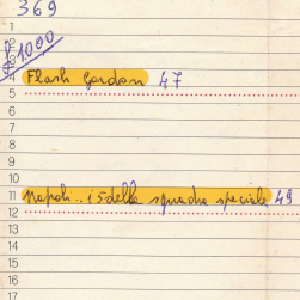 369
1
2
£1000
3
4 Flash Gordon 47
5
6
7
8
9
10
11 Napoli.. i 5 della squadra speciale 49
12
13
14
15
16
17